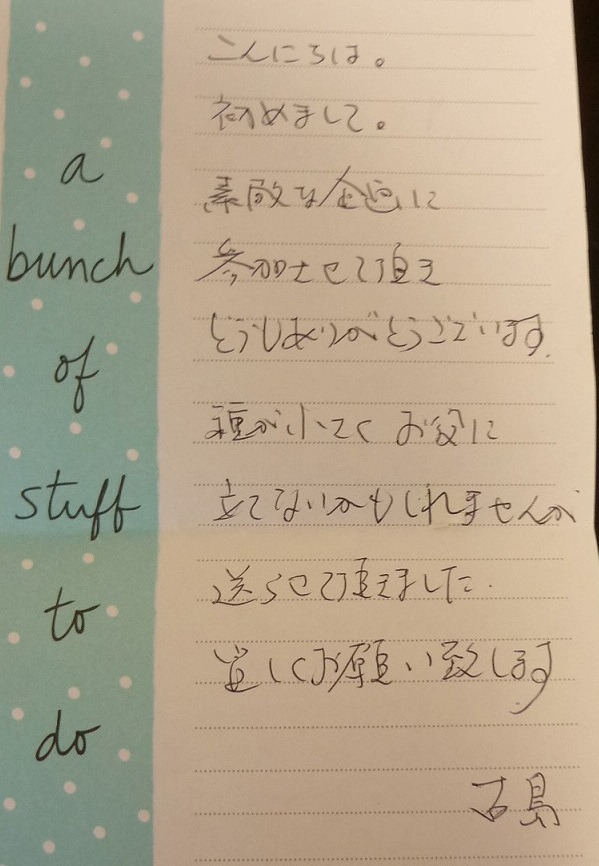 a
bunch
of
stuff
to
do
こんにちは。
初めまして。
素敵な企画に
参加させて頂き
どうもありがとうございます.
種が小さく お役に
立てないかもしれませんが
送らせて頂きました.
宜しくお願い致します